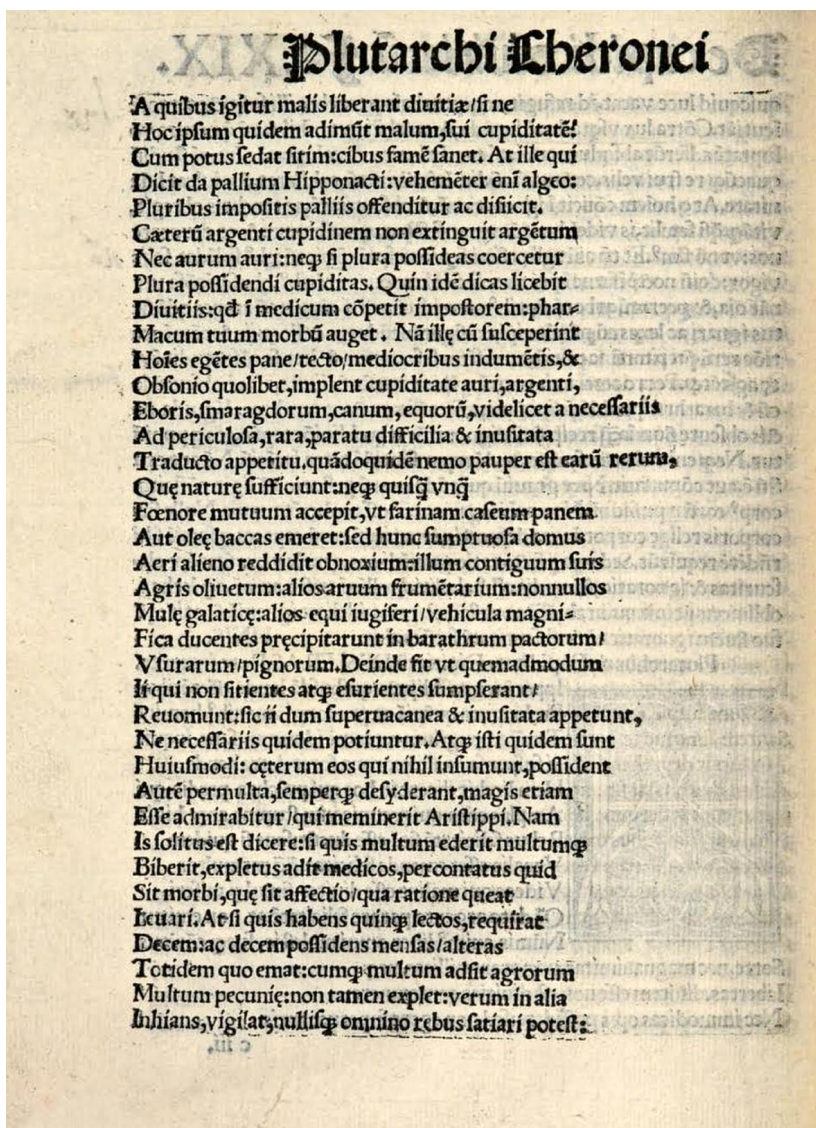 Plutarchi Cheronei
A quibus igitur malis liberant diuitiæ/si ne
Hoc ipsum quidem adimũt malum,sui cupiditatẽ?
Cum potus sedat sitim:cibus famẽ sanet. At ille qui
Dicit da pallium Hipponacti:vehemẽter enĩ algeo:
Pluribus impositis palliis offenditur ac disiicit.
Cæterũ argenti cupidinem non extinguit argẽtum
Nec aurum auri:neqꝫ si plura possideas coercetur
Plura possidendi cupiditas. Quin idẽ dicas licebit
Diuitiis:qđ ĩ medicum cõpetit impostorem:phar⸗
Macum tuum morbũ auget. Nã illę cũ susceperint
Hoĩes egẽtes pane/tecto/mediocribus indumẽtis,&
Obsonio quolibet,implent cupiditate auri,argenti,
Eboris,smaragdorum,canum,equorũ,videlicet a necessariis
Ad periculosa,rara,paratu difficilia & inusitata
Traducto appetitu.quãdoquidẽ nemo pauper est earũ rerum,
Quę naturę sufficiunt:neqꝫ quisq̃ vnq̃
Fœnore mutuum accepit,vt farinam caseum panem
Aut oleę baccas emeret:sed hunc sumptuosa domus
Aeri alieno reddidit obnoxium:illum contiguum suis
Agris oliuetum:alios aruum frumẽtarium:nonnullos
Mulę galaticę:alios equi iugiferi/vehicula magni⸗
Fica ducentes pręcipitarunt in barathrum pactorum/
Vsurarum/pignorum.Deinde fit vt quemadmodum
Ii qui non sitientes atqꝫ esurientes sumpserant/
Reuomunt:sic ii dum superuacanea & inusitata appetunt,
Ne necessariis quidem potiuntur.Atqꝫ isti quidem sunt
Huiusmodi: cęterum eos qui nihil insumunt,possident
Autẽ permulta,semperqꝫ desyderant,magis etiam
Esse admirabitur/qui meminerit Aristippi.Nam
Is solitus est dicere:si quis multum ederit multumqꝫ
Biberit,expletus adit medicos,percontatus quid
Sit morbi,quę sit affectio/qua ratione queat
Leuari.At si quis habens quinqꝫ lectos,requirat
Decem:ac decem possidens mensas/alteras
Totidem quo emat:cumqꝫ multum adsit agrorum
Multum pecunię:non tamen explet:verum in alia
Inhians,vigilat,nullisqꝫ omnino rebus satiari potest: